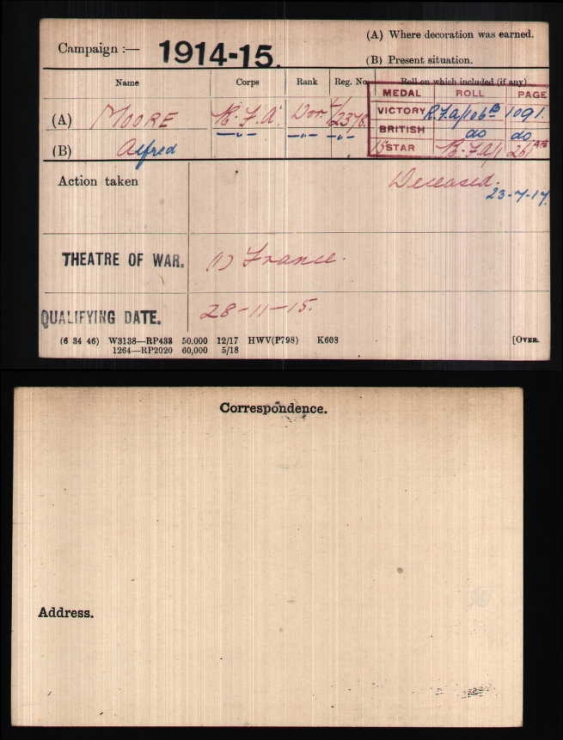 (A) Where decoration was earned.
Campaign :— 1914-15.
(B) Present situation.
Name Corps Rank Reg. No. Roll on which included (if any)
MEDAL ROLL PAGE
(A) MOORE R.F.A. VICTORY R.F.A/106B 1091.
—"— —"— —"— BRITISH do do
(B) Alfred STAR R.F.A/1
Action taken Deceased.
23-7-17
THEATRE OF WAR. (1) France.
QUALIFYING DATE. 28-11-15.
(6 34 46) W3138—RP438 50.000 12/17 HWV(P798) K608 [OVER.
1264—RP2020 60,000 5/18
Correspondence.
Address.